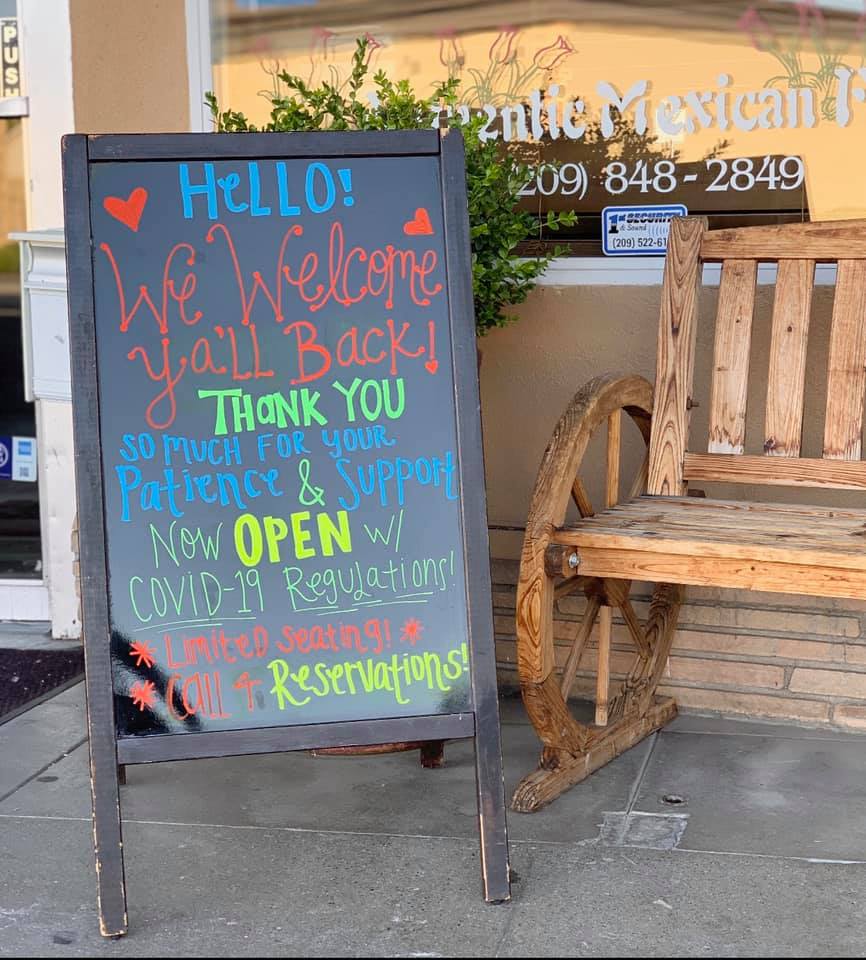 PUSH
Authentic Mexican
(209) 848-2849
1st SECURITY
& Sound
(209) 522-61
HELLO!
We Welcome
Ya'll Back!
THANK YOU
SO MUCH FOR YOUR
Patience & Support
Now OPEN w/
COVID-19 Regulations!
* Limited Seating! *
* Call 4 Reservations!